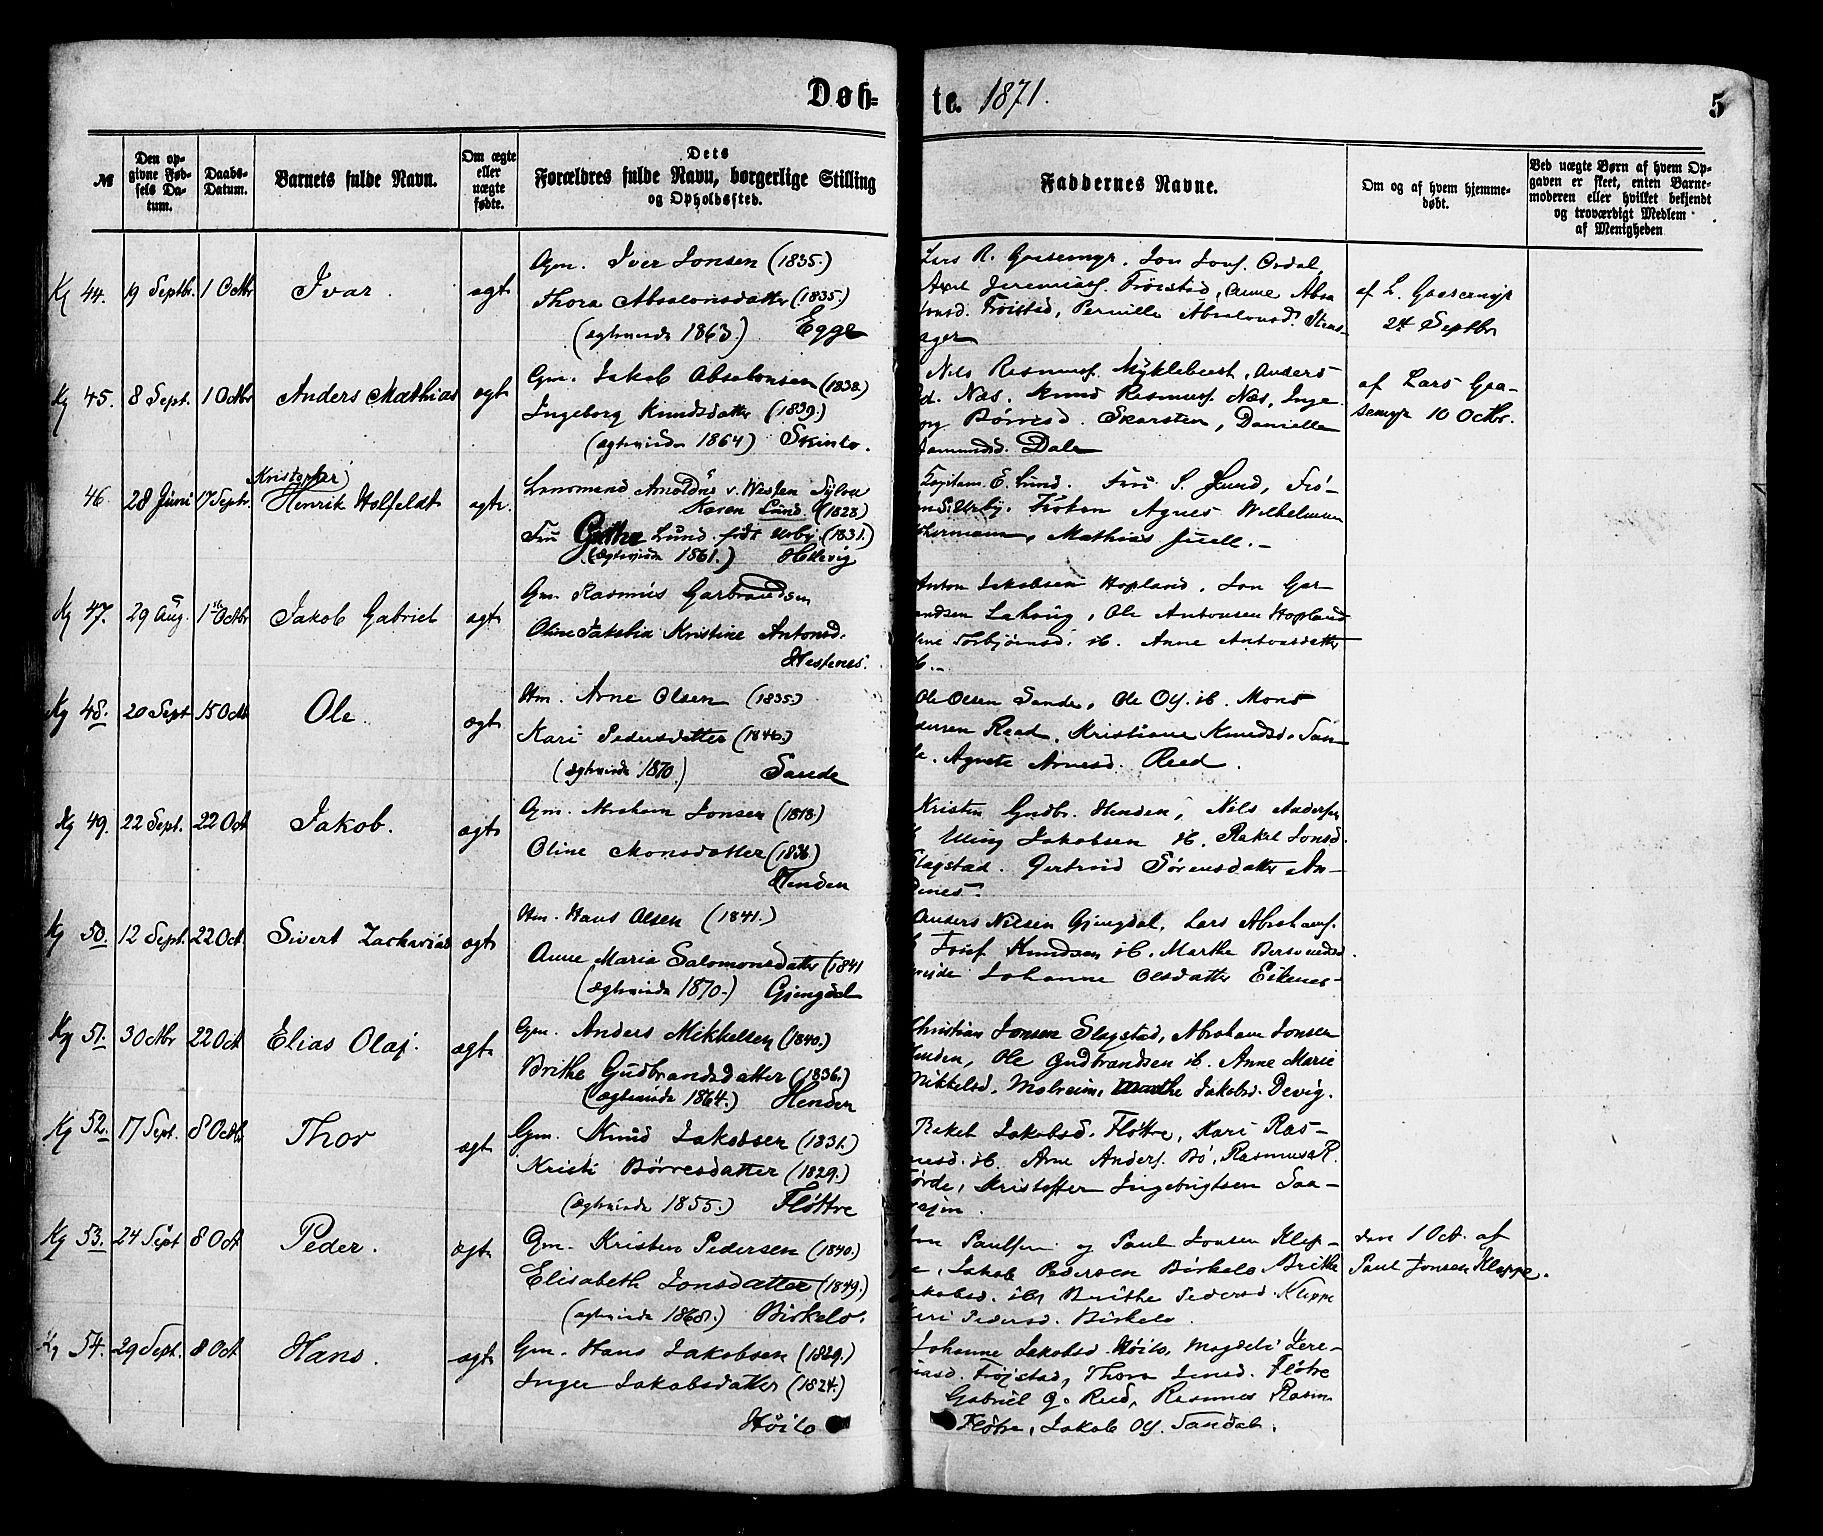 Døb-
te. 1871.
5
№
Den op-
givne Fød-
sels Da-
tum.
Daabs-
Datum.
Barnets fulde Navn.
Om ægte
eller
uægte
fødte.
Dets
Forældres fulde Navn, borgerlige Stilling
og Opholdssted.
Faddernes Navne.
Om og af hvem hjemme-
døbt.
Ved uægte Børn af hvem Op-
gaven er skeet, enten Barne-
moderen eller hvilket bekjendt
og troværdigt Medlem
af Menigheden
Kg 44. 19 Septbr. 1 Octbr Ivar. ægt
Gm. Iver Jonsen (1835.)
Thora Absalonsdatter (1835.)
(ægtevied 1863.) Egge
Lars R. Gaasemyr. Jon Jons. Ordal,
Jeremiass. Frøistad, Anne Absa
lonsd. Frøistad, Pernille Absalonsd. Stens-
ager
af L. Gaasemyr
24 Septbr
Kg 45. 8 Sept. 1 Octbr Anders Mathias ægt
Gm. Jakob Absalonsen (1838.)
Ingeborg Knudsdatter (1839.)
(ægtevied 1864) Skinlo.
Nils Rasmuss. Myklebust, Anders
Næs, Knud Rasmuss. Næs, Inge
org Børresd. Skarsten, Danielle
Aamundsd. Dale
af Lars Gaa-
semyr 10 Octbr.
46. 28 Juni 17 Septr. Kristopher
Henrik Holfeldt ægte.
Lensmand Arnoldus v. Westen Sylow
Koren Lund. (1828)
Fru Lund født Urby. (1831.)
(ægtevied 1861.) Hetlevig
Kapitain E. Lund. Fru S. Lund, Frø-
Urby, Frøken Agnes Wilhelmine
Mathias Juell.-
Kg 47. 29 Aug. 1ste Octbr Jakob Gabriel ægt
Gm. Rasmus Garbrandsen
Oline Jakobia Kristine Antonsd.
Hestenes.
Anton Jakobsen Hopland, Jon Gar-
andsen Ole Antonsen Hopland
Torbjørnsd. ib. Anne Antonsdatter
ib.-
Kg 48. 20 Sept 15 Octb Ole. ægt
Hm. Arne Olsen (1835.)
Kari Pedersdatter (1846.)
(ægtevied 1870.) Sande
Ole Olsen Sande, Ole Ols. ib. Mons
dersen Reed, Kristiane Knudsd. San-
de. Agnete Arnesd. Reed.
Kg 49. 22 Sept. 22 Oct Jakob. ægt
Gm. Abraham Jonsen (1818)
Oline Monsdatter (1836)
Henden
Kristen Gudbr. Henden, Nils Anders.
Jakobsen ib. Rakel Jonsd.
Slagstad. Gertrud Sørensdatter An-
denes.
Kg 50. 12 Sept. 22 Oct. Sivert Zacharias ægt
Hm. Hans Olsen (1841.)
Anne Maria Salomonsdatter (1841
(ægtevied 1870.) Gjengdal
Anders Nilsen Gjengdal, Lars Abrahams.
Josef Knudsen ib. Marthe
Johanne Olsdatter Eikenes-
Kg 51. 30 22 Oct Elias Olaj. ægt
Gm. Anders Mikkelsen (1840.)
Brithe Gudbrandsdatter (1836.)
(ægtevied 1864.) Henden
Christian Jonsen Slagstad, Abraham Jonsen
Henden, Ole Gudbrandsen ib. Anne Marie
Mikkelsd. Marthe Jakobsd. Devig.
Kg 52. 17 Sept. 8 Octbr Thor ægt
Gm. Knud Jakobsen (1831.)
Kristi Børresdatter (1829.)
(ægtevied 1855.) Fløttre
Rakel Jakobsd. Fløttre, Kari Ras-
musd. ib. Arne Anders. Bø, Rasmus R.
Førde, Kristoffer Ingebrigtsen Saa-
Kg 53. 24 Sept 8 Oct Peder. ægt
Gm. Kristen Pedersen (1840.)
Elisabeth Jonsdatter (1849.)
(ægtevied 1868.) Birkelo.
Jon Paulsen og Paul Jonsen Klep-
pe, Jakob Pedersen Birkelo Brithe
Jakobsd. ib. Brithe Pedersd. Kleppe
Pedersd. Birkelo.
den 1 Oct. af
Paul Jonsen Kleppe.
Kg 54. 29 Sept. 8 Oct Hans. ægt
Gm. Hans Jakobsen (1829.)
Inger Jakobsdatter (1824.)
Høilo
Johanne Jakobsd. Høilo, Magdeli Jere-
miasd. Frøjstad, Thora Jensd. Fløtre
Gabriel G. Reed, Rasmus Rasm.
Fløtre, Jakob Ols. Sandal.